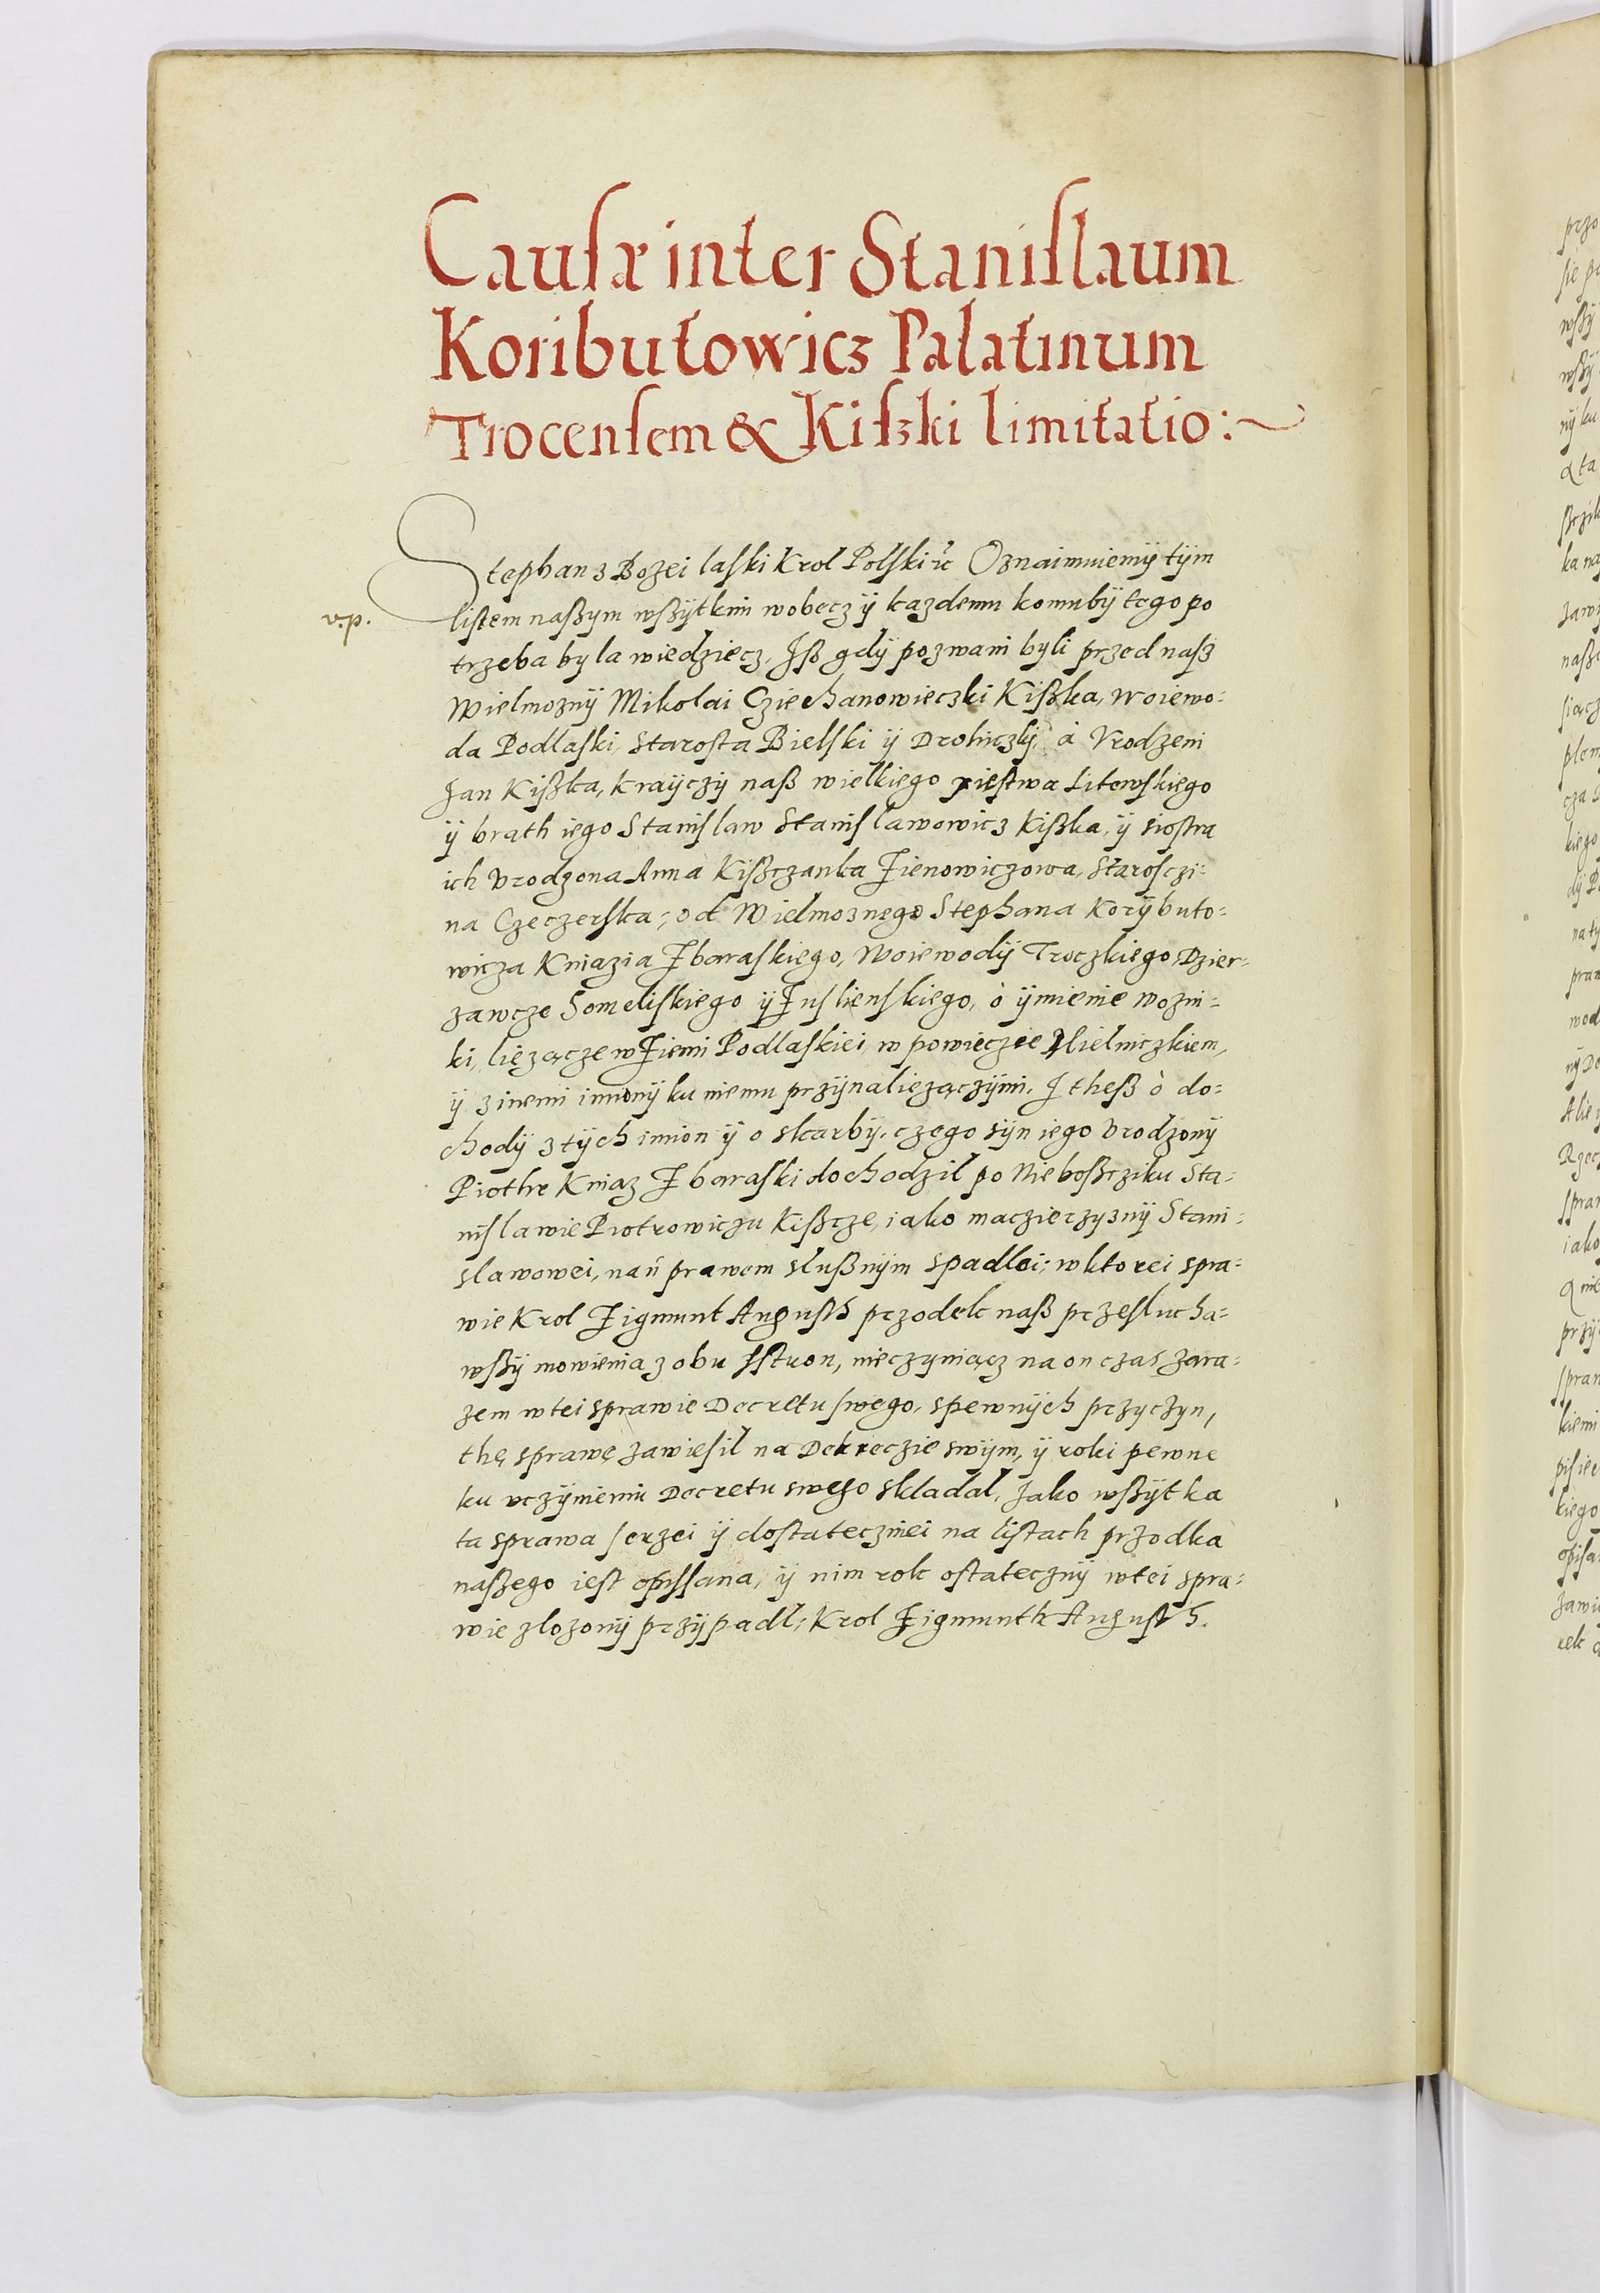 Causæ inter Staniſlaum
Koributowicz Palatinum
Trocenſem & Kiſzki limitatio:~
Stephan z Bozei laſki Krol Polſki ꝛc Oznaimuiemÿ tÿm
listem naßym wßÿtkim wobecz ÿ kazdemu komubÿ tego po
trzeba by la wiedziecz, Jß gdÿ pozwani byli przed naſz
Wielmoznÿ Mikolai Cziechanowieczki Kißka, Woiewo-
da Podlaſki, Staroſta Bielſki ÿ Drohiczkÿ, à Vrodzeni
Jan Kißka, Kraÿczÿ naß wielkiego xieſtwa Litewſkiego
ÿ brath iego Staniſlaw Staniſlawowicz Kißka, ÿ sioſtra
ich Vrodzona Anna Kißczanka Zienowiczowa, Staroſczi-
na Czeczerſka; od Wielmoznego Stephana Korÿbuto-
wicza Kniazia Zbaraſkiego, Woiewodÿ Troczkiego, Dzier-
zawcze Someliſkiego ÿ Zuſlienſkiego, ò ÿmienie Wozni-
ki, lięzącze w Ziemi Podlaſkiei, w powieczie Mielniczkiem,
ÿ z inemi imionÿ ku niemu przÿnaliezączÿmi, J theß ò do-
chodÿ z tÿch imion ÿ o skarbÿ, czego sÿn iego Vrodzonÿ
Piothr Kniaz Zbaraſki dochodzil po Nieboßcziku Sta-
niſlawie Piotrowiczu Kißcze, iako maczierzyznÿ Stani-
slawowei, nań prawem slußnÿm spadlei; w ktorei spra-
wie Krol Zigmunt Auguſth przodek naß przeſlucha-
wßÿ mowienia z obu ſſtron, nieczyniącz na on czas zara-
zem w tei sprawie Decretu ſwego, spewnÿch przyczyn,
thę sprawę zawieſil na Dekreczie swÿm, ÿ roki pewne
ku vczÿnieniu Decretu swego skladal, Jako wßÿtka
ta sprawa ſerzei ÿ doſtatecznei na liſtach przodka
naßego ieſt opiſſana, ÿ nim rok oſtatecznÿ w tei spra-
wie zlozonÿ przÿpadl; Krol Zigmunth Auguſth.